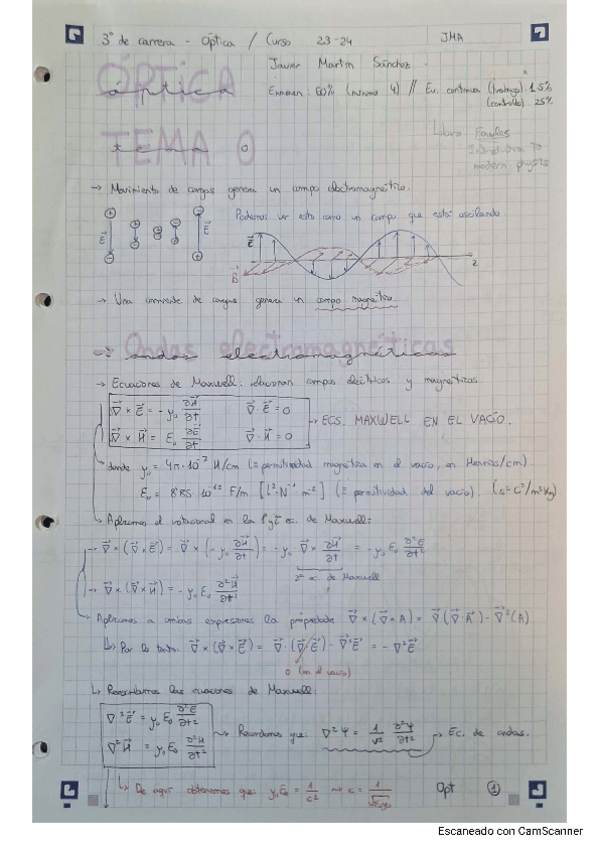 3º de carrera - Óptica / Curso 23-24 JMA
ÓPTICA
óptica
Javier Martín Sánchez
Examen: 60% (mínimo 4) // Ev. continua (trabajo) 15%
(controles) 25%
TEMA 0
tema 0
Libro Fowles
Introduction to
modern
→ Movimiento de cargas genera un campo electromagnético.
Podemos ver esto como un campo que está oscilando
E⃗ E⃗ E⃗ z
→ Una corriente de cargas genera un campo magnético
Ondas electromagnéticas
ondas electromagnéticas
→ Ecuaciones de Maxwell: relacionan campos eléctricos y magnéticos.
∇⃗ × E⃗ = - μ₀ ∂H⃗/∂t ∇⃗ · E⃗ = 0
→ ECS. MAXWELL EN EL VACÍO.
∇⃗ × H⃗ = E₀ ∂E⃗/∂t ∇⃗ · H⃗ = 0
donde μ₀ = 4π·10⁻⁷ H/cm (= permitividad magnética en el vacío, en Henrios/cm).
E₀ = 8'85 10⁻¹² F/m [l²·N⁻¹ m⁻²] (= permitividad del vacío). (s²C²/m³Kg)
→ Aplicamos el rotacional en la 1ª y 2ª ec. de Maxwell:
→ ∇⃗ × (∇⃗ × E⃗) = ∇⃗ × (- μ₀ ∂H⃗/∂t) = - μ₀ ∇⃗ × ∂H⃗/∂t = - μ₀ E₀ ∂²E⃗/∂t²
2ª ec. de Maxwell
→ ∇⃗ × (∇⃗ × H⃗) = - μ₀ E₀ ∂²H⃗/∂t²
→ Aplicamos a ambas expresiones la propiedad ∇⃗ × (∇⃗ × A) = ∇⃗ (∇⃗ · A⃗) - ∇⃗²(A)
↳ Por lo tanto: ∇⃗ × (∇⃗ × E⃗) = ∇⃗ · (∇⃗ E⃗) - ∇⃗²E⃗ = - ∇²E⃗
0 (en el vacío)
↳ las ecuaciones de Maxwell:
∇²E⃗ = μ₀E₀ ∂²E⃗/∂t²
→ Recordemos que: ∇²Ψ = 1/v² ∂²Ψ/∂t² → Ec. de ondas.
∇²H⃗ = μ₀E₀ ∂²H⃗/∂t²
↳ De aquí obtenemos que: μ₀E₀ = 1/c² → c = 1/√E₀μ₀ Opt 1
Escaneado con CamScanner